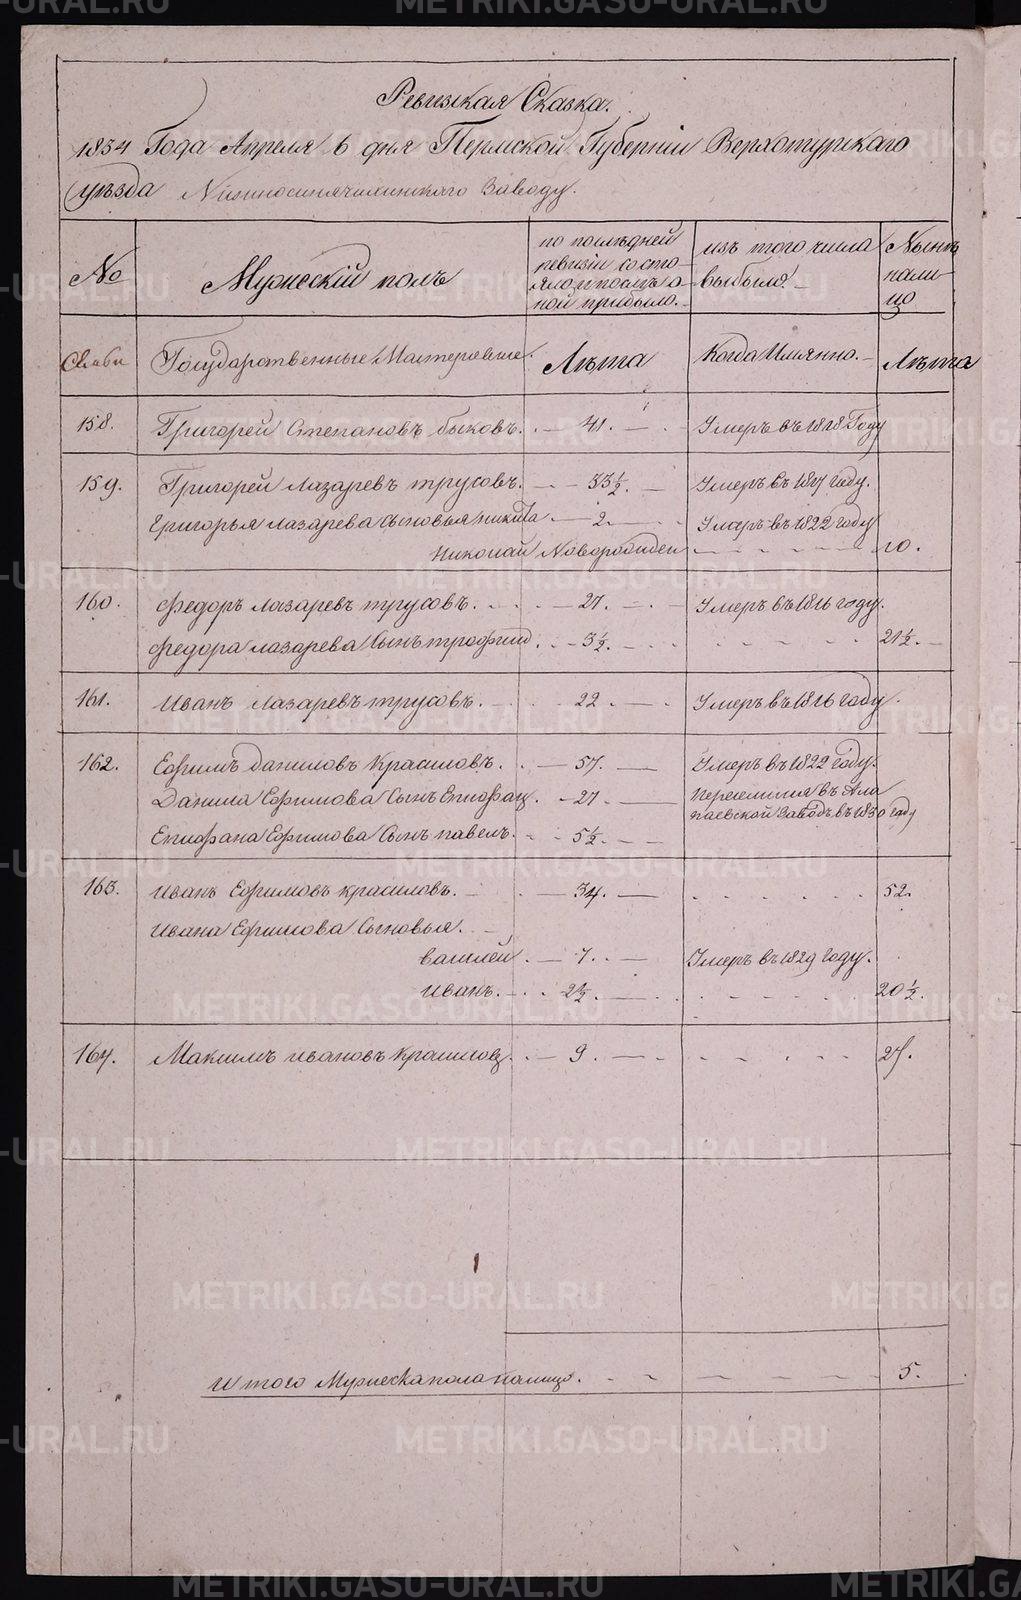 Ревизская Сказка.
1834 Года Апреля 6 дня Пермской Губернiи Верхотурского
Уѣзда Нижносинячихинского Заводу.
№
Мужескiй полъ
по послѣдней
ревизiи состо-
яло и послѣ о
ной прибыло.
изъ того числа
выбыло.
Нынѣ
нали-
цо
Семьи
Государственные Мастеровые.
Лѣта
Когда Имянно.
Лѣта
158. Григорей Степановъ быковъ. 41. Умеръ въ 1828 Году
159. Григорей лазаревъ трусовъ. 33 ½. Умеръ въ 1827 году.
Григорья лазарева Сыновья никита 2. Умеръ въ 1822 году
Николай Новорожден 10.
160. Федоръ лазаревъ трусовъ. 27. Умеръ въ 1816 году.
Федора лазарева Сынъ трофим 3 ½. 21 ½.
161. Иванъ лазаревъ трусовъ. 22. Умеръ въ 1816 году.
162. Ефимъ даниловъ Красиловъ. 57. Умеръ въ 1822 году.
Данила Ефимова Сынъ Епифан. 27. переселился въ Ала
паевской Заводъ въ 1830 году
Епифана Ефимова Сынъ павелъ. 5 ½.
163. Иванъ Ефимовъ красиловъ. 34. 52.
Ивана Ефимова Сыновья.
василей. 7. Умеръ въ 1829 году.
Иванъ. 2 ½. 20 ½.
164. Максимъ ивановъ Красиловъ. 9. 27.
итого Мужеска пола налицо. 5.
METRIKI.GASO-URAL.RU